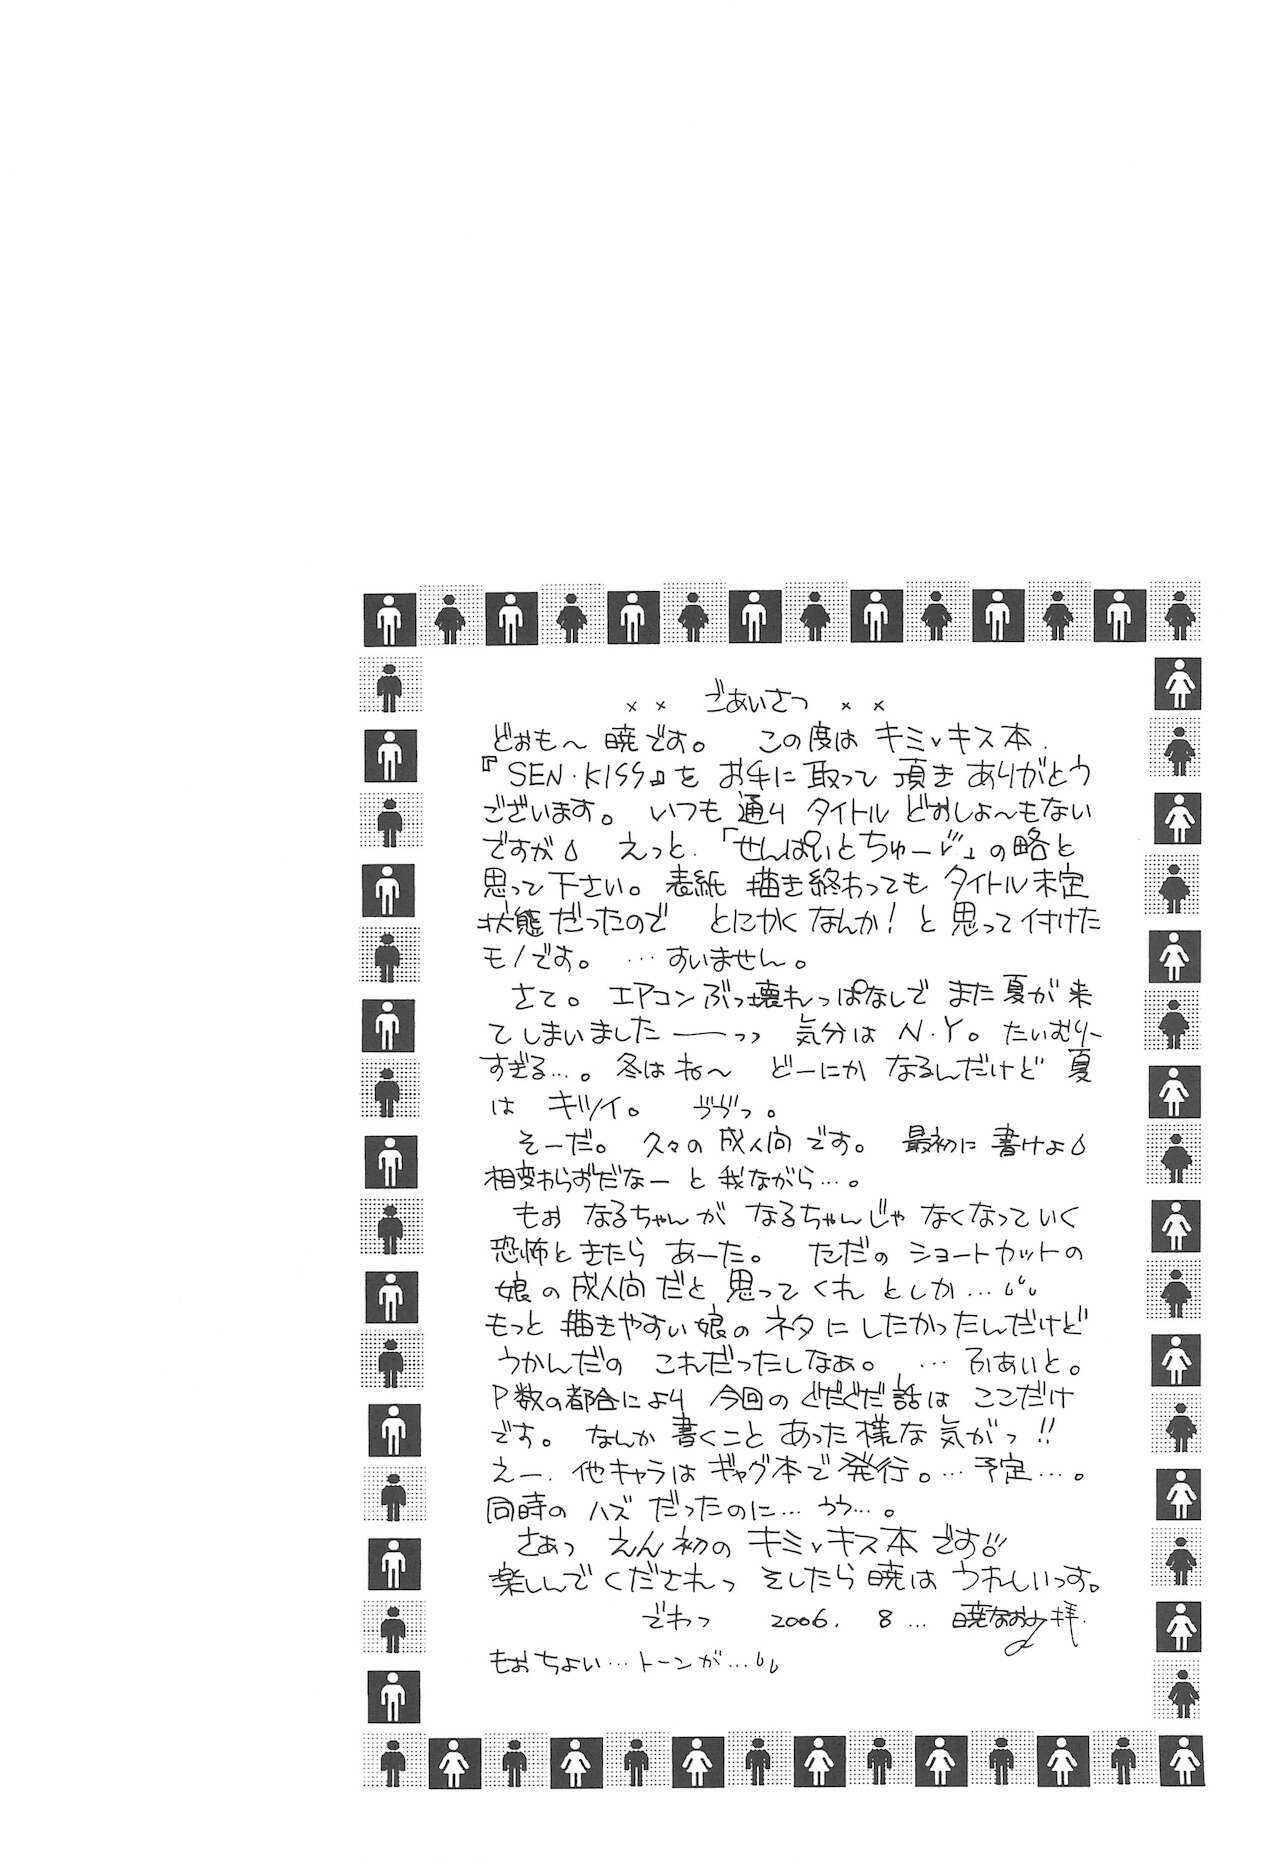 ×× ごあいさつ ××
どおも〜 暁です。 この度は キミ♥キス本
『SEN・KISS』を お手に取って頂き ありがとう
ございます。 いつも通り タイトル どおしょ〜もない
ですが えっと、「せんぱいとちゅー♥」の略と
思って下さい。表紙 描き終わっても タイトル未定
状態だったので とにかくなんか！と思って付けた
モノです。…すいません。
さて。 エアコンぶっ壊れっぱなしで また夏が来
てしまいました――っっ 気分は N.Y。たいむりー
すぎる…。冬はね〜 どーにか なるんだけど 夏
は キツイ。 ゔゔっ。
そーだ。 久々の成人向です。 最初に書けよ
相変わらずだなーと我ながら…。
もぉ なるちゃんが なるちゃんじゃ なくなっていく
恐怖ときたら あーた。 ただの ショートカットの
娘の成人向だと 思ってくれ としか…
もっと 描きやすい娘の ネタに したかったんだけど
うかんだの これだったしなぁ。 …ふぁいと。
P数の都合により 今回のぐだぐだ話は ここだけ
です。 なんか 書くこと あった様な気がっ!!
えー、他キャラは ギャグ本で発行。…予定…。
同時の ハズ だったのに… うう…。
さぁっ えん初の キミ♥キス本です!!
楽しんでくだされっ そしたら暁は うれしいっす。
でわっ 2006. 8… 暁なおみ 拝.
もぉちょい…トーンが…